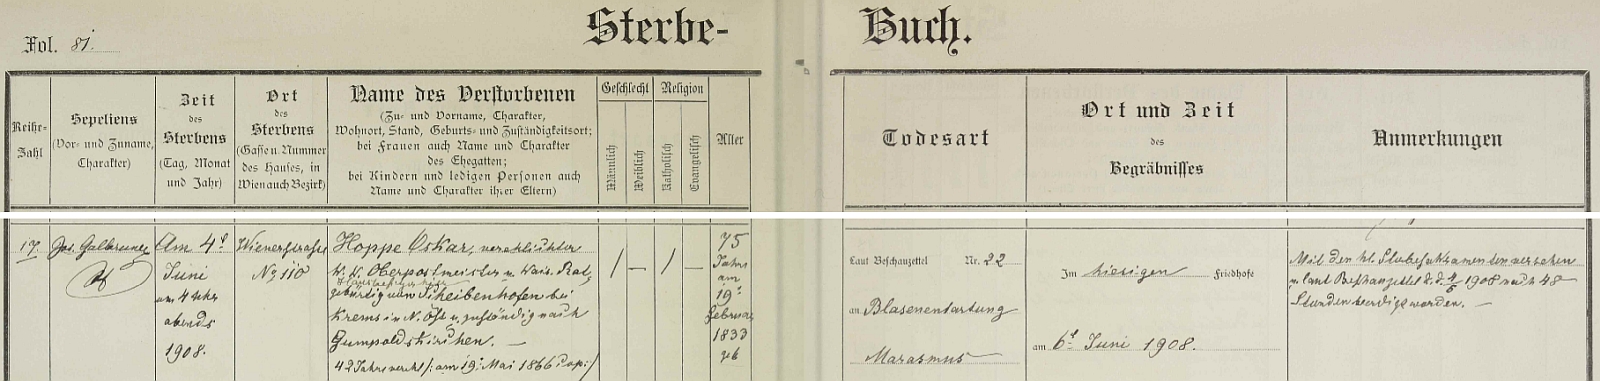 Sterbe- Buch.
Fol. 81.
Reihe-Zahl
Sepeliens
(Vor- und Zuname,
Charakter)
Zeit
des
Sterbens
(Tag, Monat
und Jahr)
Ort
des
Sterbens
(Gasse u Nummer
des Hauses, in
Wien auch Bezirk)
Name des Verstorbenen
(Zu- und Vorname, Charakter,
Wohnort, Stand, Geburts- und Zuständigkeitsort;
bei Frauen auch Name und Charakter
des Ehegatten;
bei Kindern und ledigen Personen auch
Name und Charakter ihrer Eltern)
Geschlecht
Männlich
Weiblich
Religion
Katholisch
Evangelisch
Alter
Todesart
Ort und Zeit
des
Begräbnisses
Anmerkungen
17.
Jos. Galbruner
Am 4t
Juni
um 4 Uhr
abends
1908.
Wienerstrasse
No 110
Hoppe Oskar, verehlichter
K. K. Oberpostmeister u. Kais. Rat,
Hausbesitzer hier
gebürtig von Scheibenhofen bei
Krems in N. Öst. u. zuständig nach
Gumpoldskirchen. —
42 Jahre verehl /: am 19. Mai 1866 cop :/
/ — / —
75
Jahre
am
19.
Februar
1833
geb
Laut Beschauzettel Nr. 22
an Blasenentartung
Marasmus
Im hiesigen Friedhofe
am 6t Juni 1908.
Mit den hl. Sterbesakramenten versehen
u. laut Beschauzettel d. d. 4/6 1908 nach 48
Stunden beerdigt worden. —